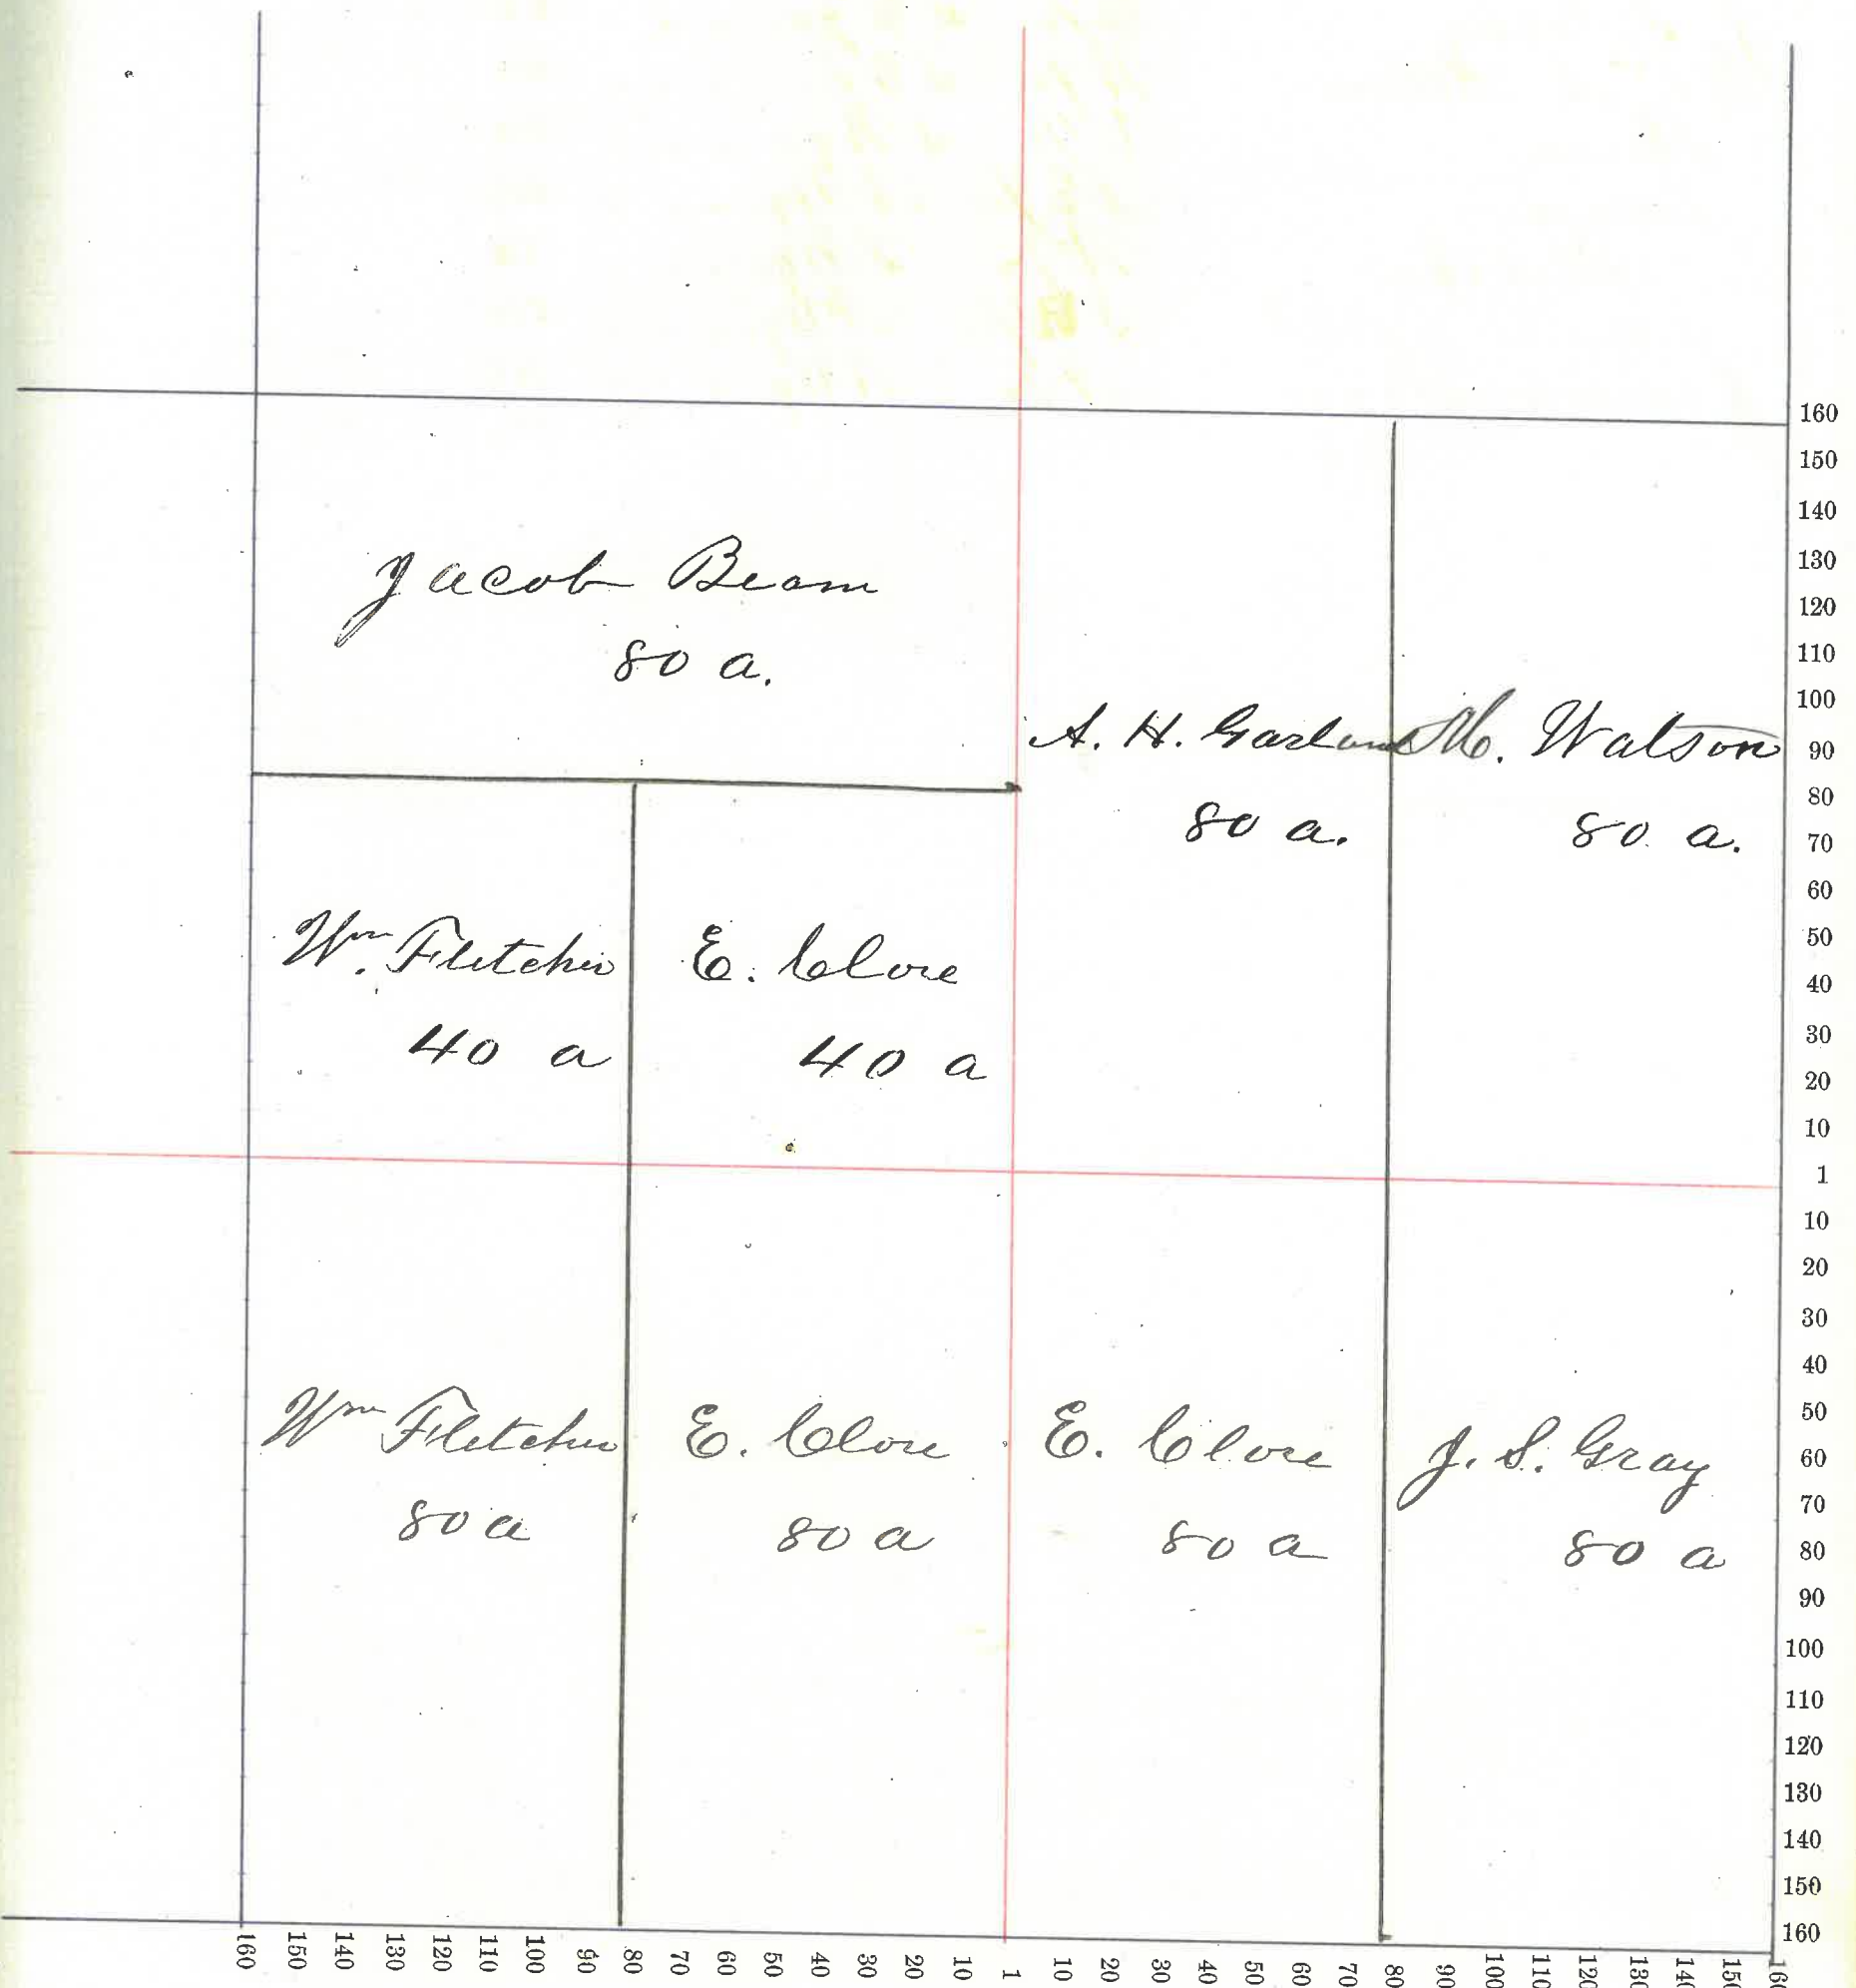 Jacob Beam
80 a.
A. H. Garland
80 a.
M. Watson
80 a.
Wm. Fletcher
40 a
E. Clore
40 a
Wm Fletcher
80 a
E. Clore
80 a
E. Clore
80 a
J. S. Gray
80 a
160
150
140
130
120
110
100
90
80
70
60
50
40
30
20
10
1
10
20
30
40
50
60
70
80
90
100
110
120
130
140
150
160
160 150 140 130 120 110 100 90 80 70 60 50 40 30 20 10 1 10 20 30 40 50 60 70 80 90 100 110 120 130 140 150 160